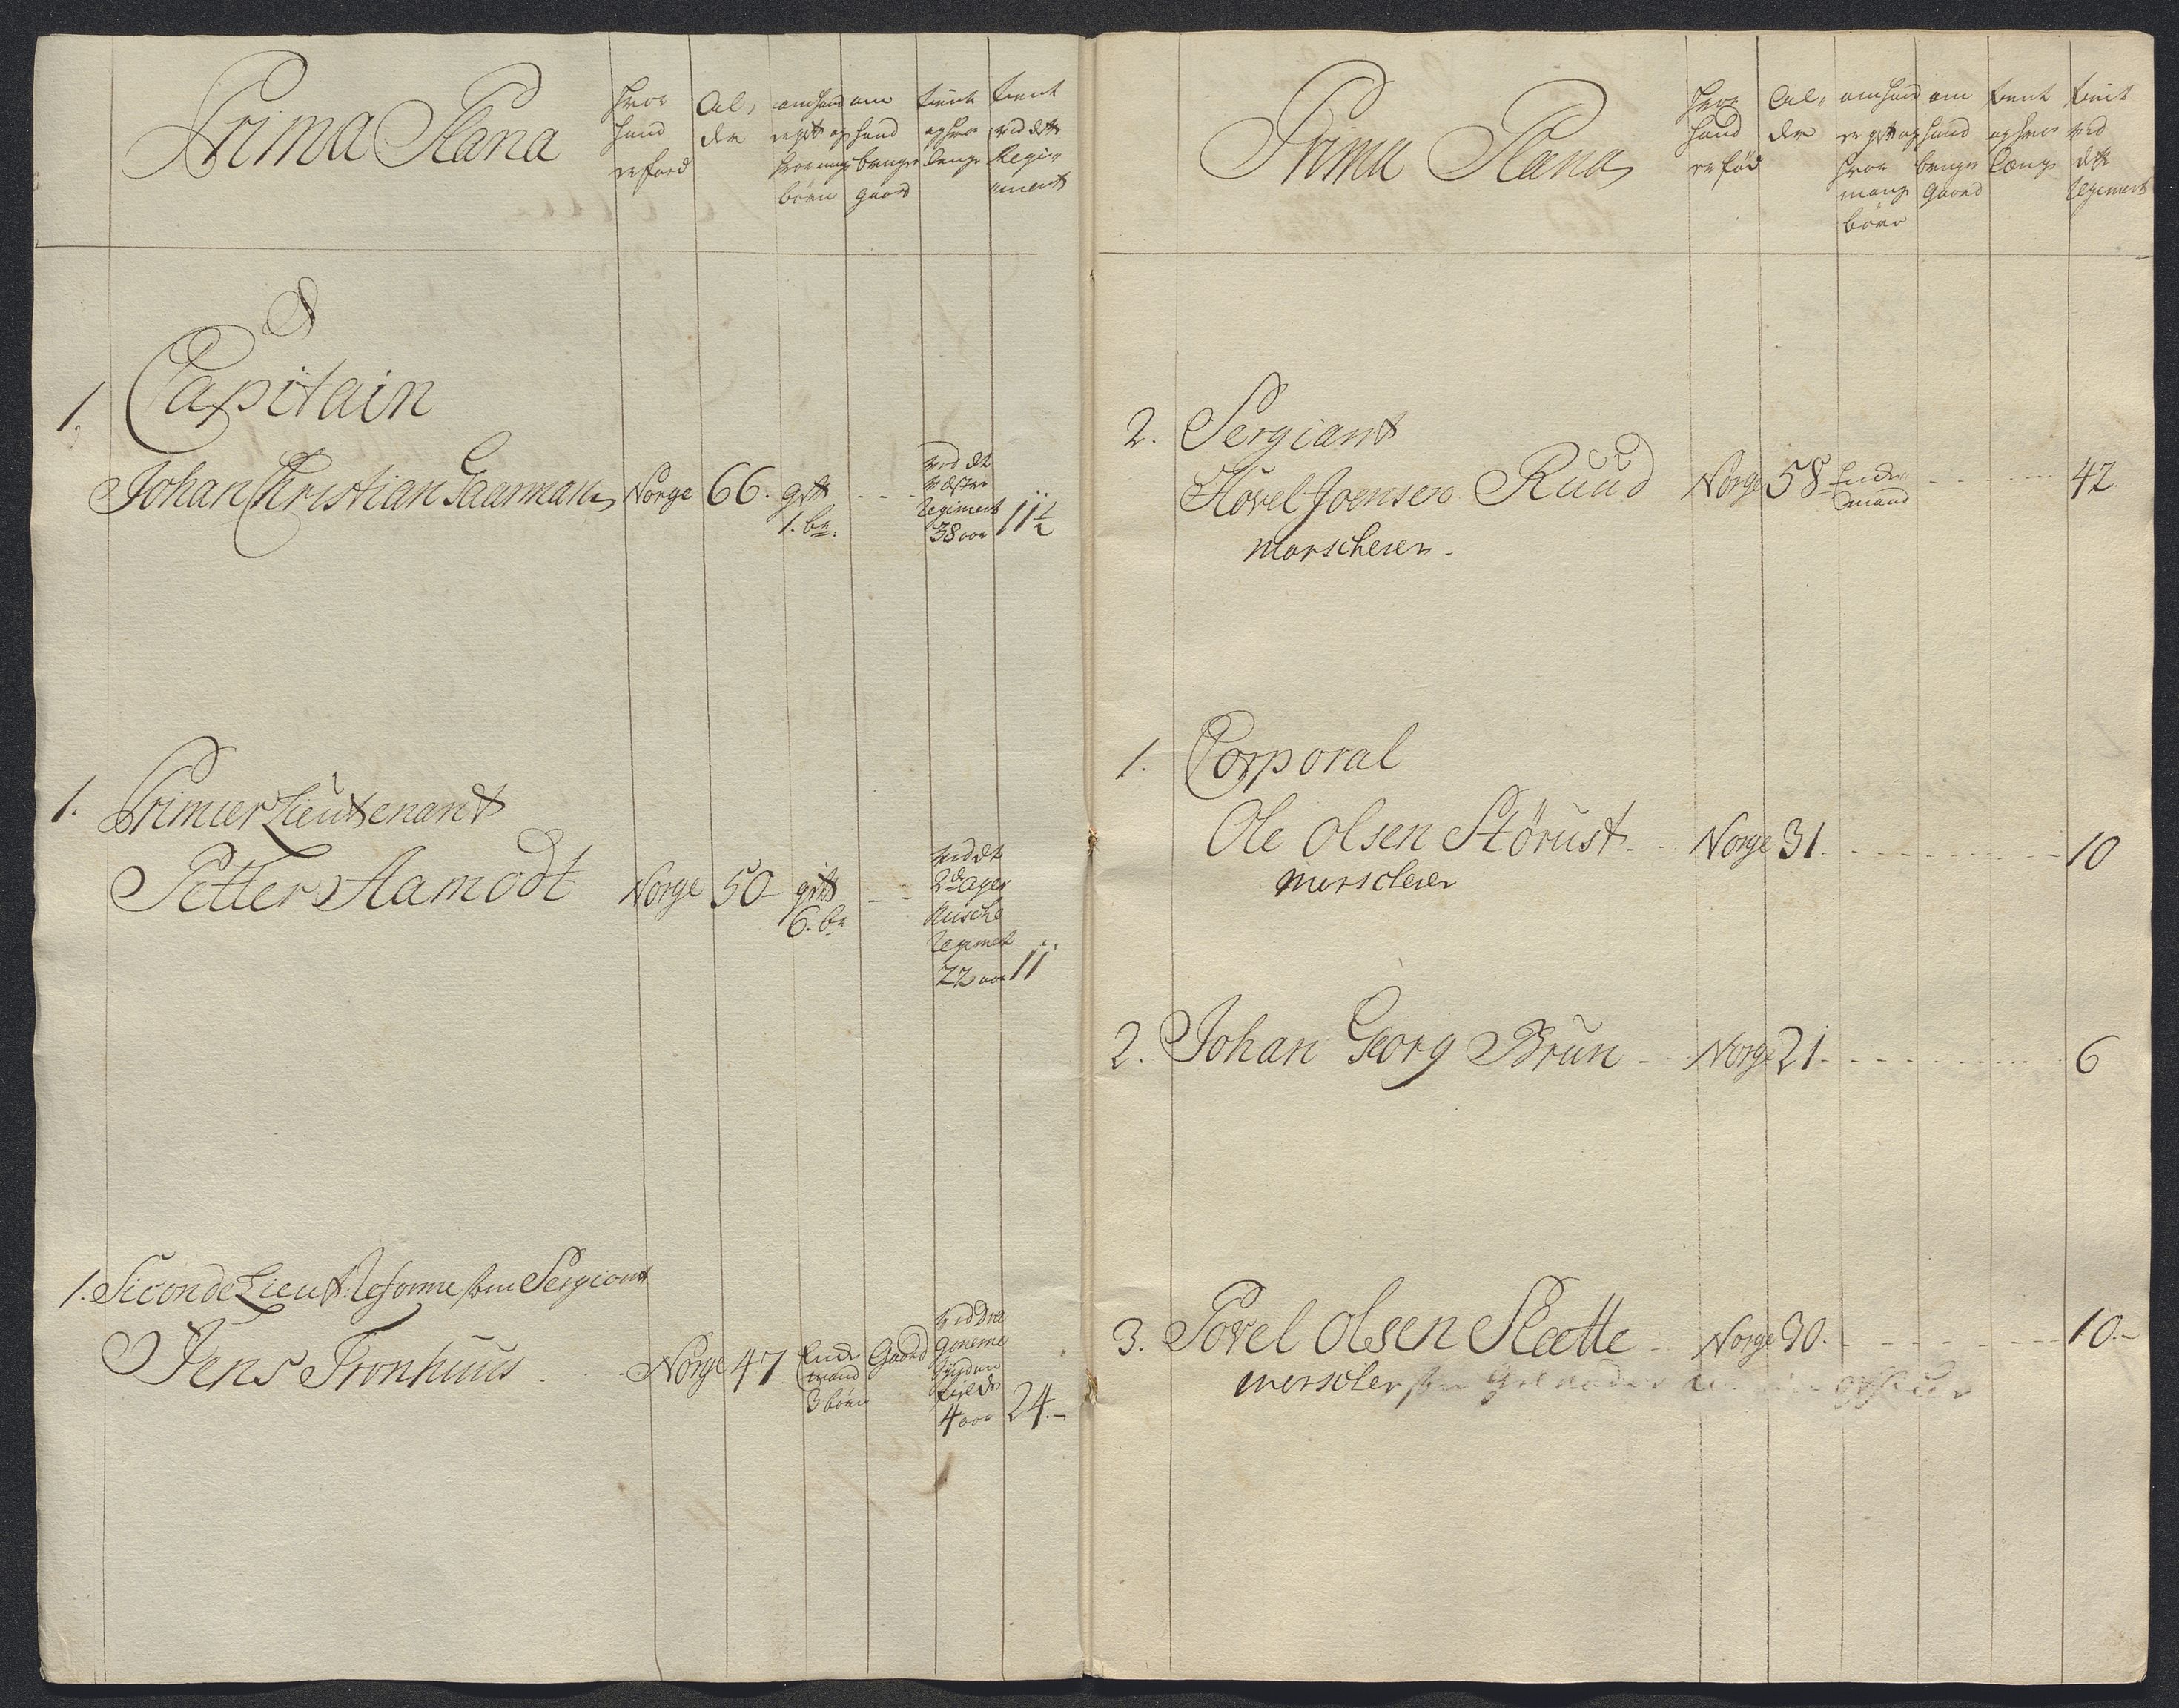 Prima Plana
hvor hand er foed
Al, der
om hand er gift og hvor mange børn
om hand bruger gaard
tient og hvor lenge
tient ved dette Regi, ment
1. Capitain
Johan Christian Gaarmann Norge 66. gift 1. bn: - - - ved det Regiment 38 aar 11½
1. Primier Lieutenant
Petter Aamodt Norge 50 - gift 6. bn - - ved det 2de Ager husche Regiment 22 aar 11
1. Seconde Lieut: Reforme som Sergiant
Jens Tronhuus Norge 47 Enke mand 3 børn Gaard 4 aar 24.-
Prima Plana
hvor hand er fød
Al, der
om hand er gift og hvor mange børn
om hand bruger Gaard
tient og hvor længe
tient ved dette Regiment
2. Sergiant
Hovel Joensen Ruud Norge 58 - Enke mand - - - - 42.
marscherer.
1. Corporal
Ole Olsen Störust - - Norge 31. - - - - - - 10
merscherer
2. Johan Georg Brun - - Norge 21. - - - - - - 6
3. Povel Olsen Slætte - Norge 30. - - - - - - 10.-
merscherer som